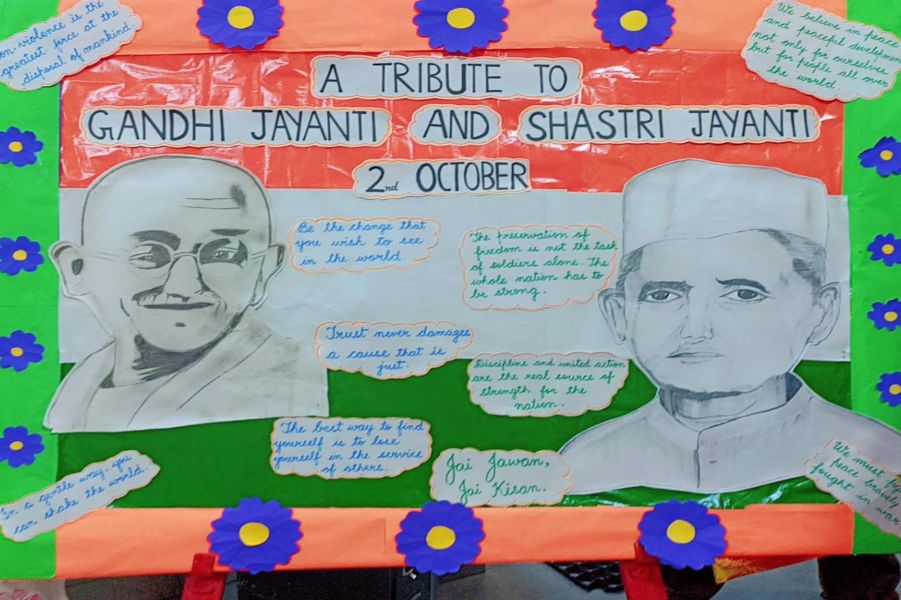 A TRIBUTE TO
GANDHI JAYANTI AND SHASTRI JAYANTI
2nd OCTOBER
on-violence is the
greatest force at the
disposal of mankind
We believe in peace
and peaceful development
not only for ourselves
but for people all over
the world.
Be the change that
you wish to see
in the world.
The preservation of
freedom is not the task
of soldiers alone. The
whole nation has to
be strong.
Trust never damages
a cause that is
just.
Discipline and united action
are the real source of
strength for the
nation.
The best way to find
yourself is to lose
yourself in the service
of others.
Jai Jawan,
Jai Kisan.
In a gentle way, you
can shake the world.
We must
peace bravely
fought in war